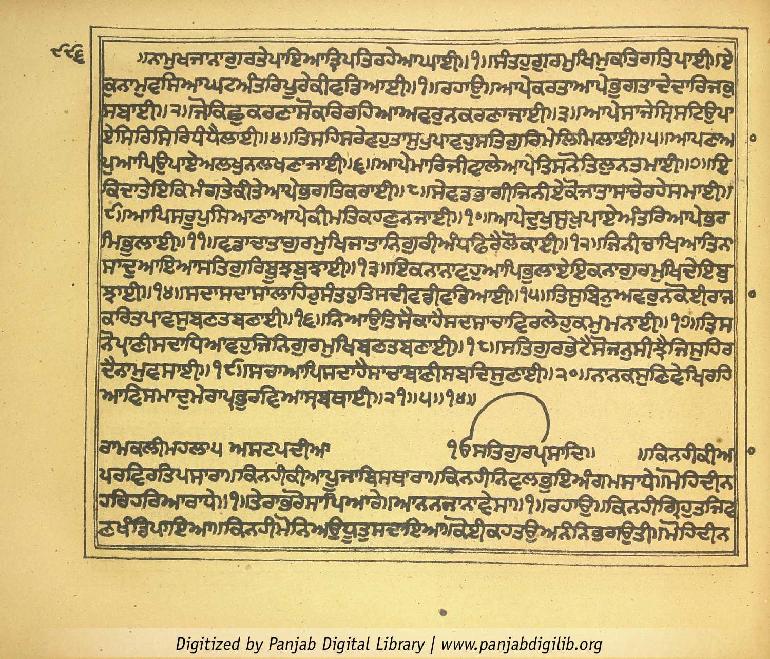 ੯੧੬
॥ਨਾਮੁਖਜਾਨਾਗੁਰਤੇਪਾਇਆਤ੍ਰਿਪਤਿਰਹੇਆਘਾਈ॥੧॥ਸੰਤਹੁਗੁਰਮੁਖਿਮੁਕਤਿਗਤਿਪਾਈ॥ਏ
ਕੁਨਾਮੁਵਸਿਆਘਟਅੰਤਰਿਪੂਰੇਕੀਵਡਿਆਈ॥੧॥ਰਹਾਉ॥ਆਪੇਕਰਤਾਆਪੇਭੁਗਤਾਦੇਦਾਰਿਜਕੁ
ਸਬਾਈ॥੨॥ਜੋਕਿਛੁਕਰਣਾਸੋਕਰਿਰਹਿਆਅਵਰੁਨਕਰਣਾਜਾਈ॥੩॥ਆਪੇਸਾਜੇਸ੍ਰਿਸਟਿਉਪਾ
ਏਸਿਰਿਸਿਰਿਧੰਧੈਲਾਈ॥੪॥ਤਿਸਹਿਸਰੇਵਹੁਤਾਸੁਖੁਪਾਵਹੁਸਤਿਗੁਰਿਮੇਲਿਮਿਲਾਈ॥੫॥ਆਪਣਾਆ
ਪੁਆਪਿਉਪਾਏਅਲਖੁਨਲਖਣਾਜਾਈ॥੬॥ਆਪੇਮਾਰਿਜੀਵਾਲੇਆਪੇਤਿਸਨੋਤਿਲੁਨਤਮਾਈ॥੭॥ਇ
ਕਿਦਾਤੇਇਕਿਮੰਗਤੇਕੀਤੇਆਪੇਭਗਤਿਕਰਾਈ॥੮॥ਸੇਵਡਭਾਗੀਜਿਨੀਏਕੋਜਾਤਾਸਾਚੇਰਹੇਸਮਾਈ॥
੯॥ਆਪਿਸਰੂਪੁਸਿਆਣਾਆਪੇਕੀਮਤਿਕਹਣੁਨਜਾਈ॥੧੦॥ਆਪੇਦੁਖੁਸੁਖੁਪਾਏਅੰਤਰਿਆਪੇਭਰ
ਮਿਭੁਲਾਈ॥੧੧॥ਵਡਾਦਾਤਾਗੁਰਮੁਖਿਜਾਤਾਨਿਗੁਰੀਅੰਧਫਿਰੈਲੋਕਾਈ॥੧੨॥ਜਿਨੀਚਾਖਿਆਤਿਨਾ
ਸਾਦੁਆਇਆਸਤਿਗੁਰਿਬੂਝਬੁਝਾਈ॥੧੩॥ਇਕਨਾਨਾਵਹੁਆਪਿਭੁਲਾਏਇਕਨਾਗੁਰਮੁਖਿਦੇਇਬੁ
ਝਾਈ॥੧੪॥ਸਦਾਸਦਾਸਾਲਾਹਿਹੁਸੰਤਹੁਤਿਸਦੀਵਡੀਵਡਿਆਈ॥੧੫॥ਤਿਸੁਬਿਨੁਅਵਰੁਨਕੋਈਰਾਜਾ
ਕਰਿਤਪਾਵਸੁਬਣਤਬਣਾਈ॥੧੬॥ਨਿਆਉਤਿਸੈਕਾਹੈਸਦਸਾਚਾਵਿਰਲੇਹੁਕਮੁਮਨਾਈ॥੧੭॥ਤਿਸ
ਨੋਪ੍ਰਾਣੀਸਦਾਧਿਆਵਹੁਜਿਨਿਗੁਰਮੁਖਿਬਣਤਬਣਾਈ॥੧੮॥ਸਤਿਗੁਰਭੇਟੈਸੋਜਨੁਸੀਝੈਜਿਸੁਹਿਰ
ਦੈਨਾਮੁਵਸਾਈ॥੧੯॥ਸਚਾਆਪਿਸਦਾਹੈਸਾਚਾਬਾਣੀਸਬਦਿਸੁਣਾਈ॥੨੦॥ਨਾਨਕਸੁਣਿਵੇਖਿਰਹਿ
ਆਵਿਸਮਾਦੁਮੇਰਾਪ੍ਰਭੁਰਵਿਆਸ੍ਰਬਥਾਈ॥੨੧॥੫॥੧੪॥
ਰਾਮਕਲੀਮਹਲਾ੫ ਅਸਟਪਦੀਆ ੴਸਤਿਗੁਰਪ੍ਰਸਾਦਿ॥ ॥ਕਿਨਹੀਕੀਆ
ਪਰਵਿਰਤਿਪਸਾਰਾ॥ਕਿਨਹੀਕੀਆਪੂਜਾਬਿਸਥਾਰਾ॥ਕਿਨਹੀਨਿਵਲਭੁਇਅੰਗਮਸਾਧੇ॥ਮੋਹਿਦੀਨ
ਹਰਿਹਰਿਆਰਾਧੇ॥੧॥ਤੇਰਾਭਰੋਸਾਪਿਆਰੇ॥ਆਨਨਜਾਨਾਵੇਸਾ॥੧॥ਰਹਾਉ॥ਕਿਨਹੀਗ੍ਰਿਹੁਤਜਿਵ
ਣਖੰਡਿਪਾਇਆ॥ਕਿਨਹੀਮੋਨਿਅਉਧੂਤੁਸਦਾਇਆ॥ਕੋਈਕਹਤਉਅਨੰਨਿਭਗਉਤੀ॥ਮੋਹਿਦੀਨ
Digitized by Panjab Digital Library | www.panjabdigilib.org